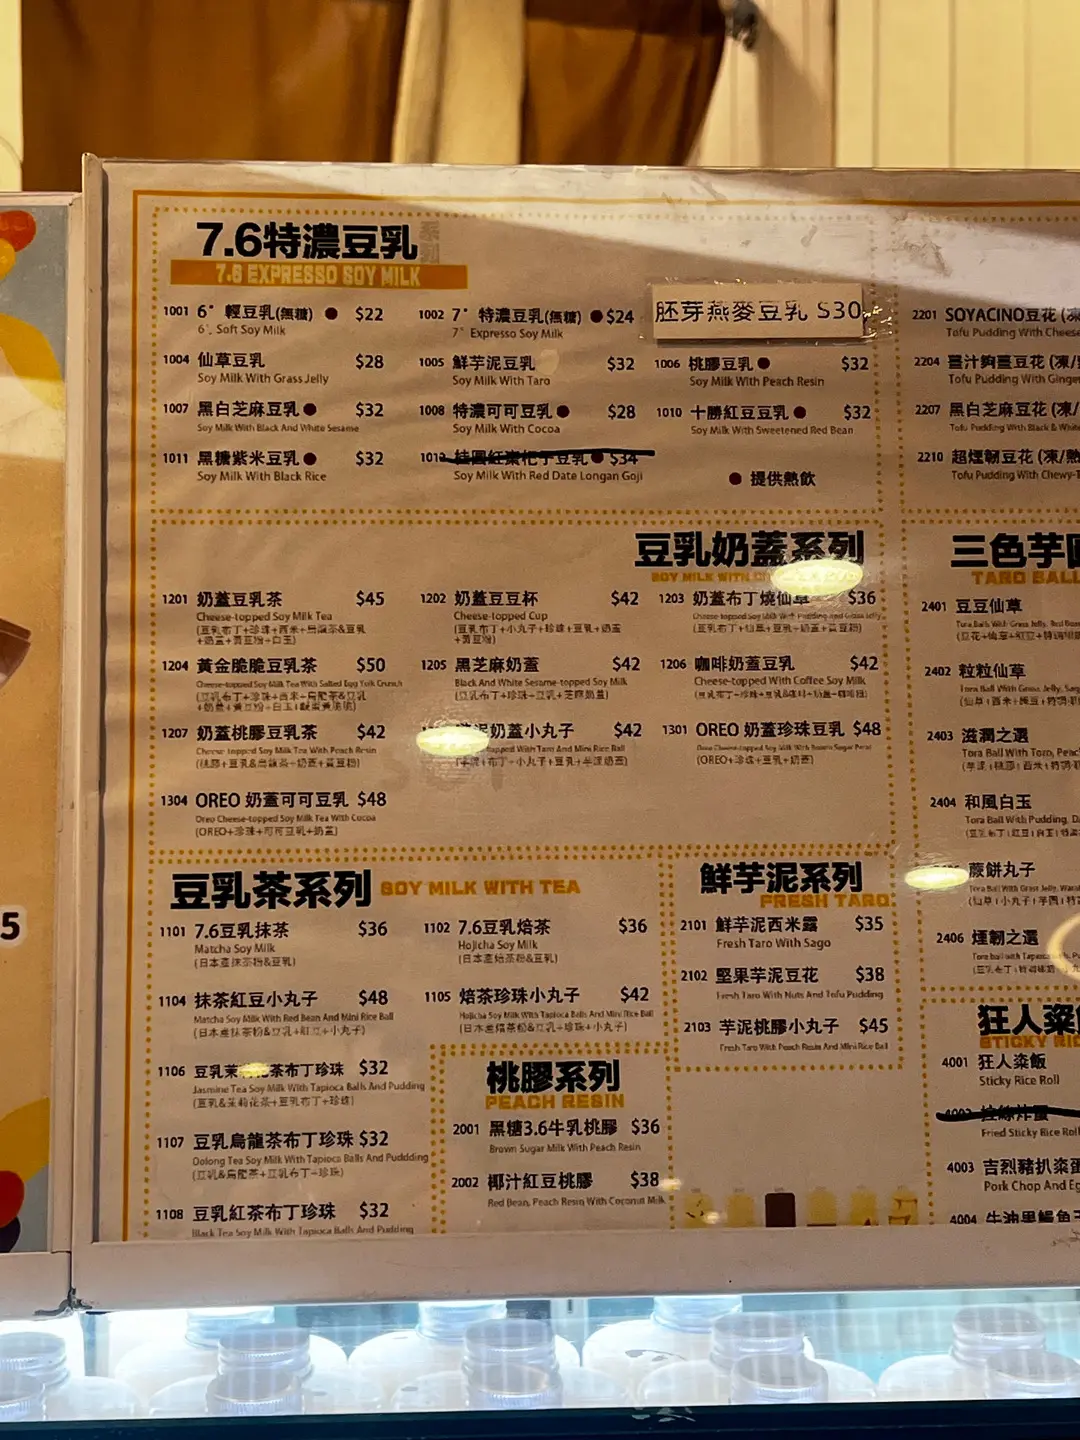 7.6特濃豆乳系列
7.6 EXPRESSO SOY MILK
1001 6° 輕豆乳(無糖) ● $22
6°. Soft Soy Milk
1002 7° 特濃豆乳(無糖) ● $24
7° Expresso Soy Milk
胚芽燕麥豆乳 $30
1004 仙草豆乳 $28
Soy Milk With Grass Jelly
1005 鮮芋泥豆乳 $32
Soy Milk With Taro
1006 桃膠豆乳 ● $32
Soy Milk With Peach Resin
1007 黑白芝麻豆乳 ● $32
Soy Milk With Black And White Sesame
1008 特濃可可豆乳 ● $28
Soy Milk With Cocoa
1010 十勝紅豆豆乳 ● $32
Soy Milk With Sweetened Red Bean
1011 黑糖紫米豆乳 ● $32
Soy Milk With Black Rice
1012 桂圓紅棗杞子豆乳 ● $34
Soy Milk With Red Date Longan Goji
● 提供熱飲
豆乳奶蓋系列
SOY MILK WITH
1201 奶蓋豆乳茶 $45
Cheese-topped Soy Milk Tea
(豆乳布丁+珍珠+西米+烏龍茶&豆乳
+奶蓋+黃豆粉+白玉)
1202 奶蓋豆豆杯 $42
Cheese-topped Cup
(豆乳布丁+小丸子+珍珠+豆乳+奶蓋
+黃豆粉)
1203 奶蓋布丁燒仙草 $36
Cheese-topped Soy Milk With Pudding and Grass Jelly
(豆乳布丁+仙草+豆乳+奶蓋+黃豆粉)
1204 黃金脆脆豆乳茶 $50
Cheese-topped Soy Milk Tea With Salted Egg Yolk Crunch
(豆乳布丁+珍珠+西米+烏龍茶&豆乳
+奶蓋+黃豆粉+白玉+鹹蛋黃脆脆)
1205 黑芝麻奶蓋 $42
Black And White Sesame-topped Soy Milk
(豆乳布丁+珍珠+豆乳+芝麻奶蓋)
1206 咖啡奶蓋豆乳 $42
Cheese-topped With Coffee Soy Milk
1207 奶蓋桃膠豆乳茶 $42
Cheese-topped Soy Milk Tea With Peach Resin
(桃膠+豆乳&烏龍茶+奶蓋+黃豆粉)
泥奶蓋小丸子 $42
topped With Taro And Mini Rice Ball
(芋泥+布丁+小丸子+豆乳+芋泥奶蓋)
1301 OREO 奶蓋珍珠豆乳 $48
Oreo Cheese-topped Soy Milk With Brown Sugar Pearl
(OREO+珍珠+豆乳+奶蓋)
1304 OREO 奶蓋可可豆乳 $48
Oreo Cheese-topped Soy Milk Tea With Cocoa
(OREO+珍珠+可可豆乳+奶蓋)
豆乳茶系列 SOY MILK WITH TEA
1101 7.6豆乳抹茶 $36
Matcha Soy Milk
(日本產抹茶粉&豆乳)
1102 7.6豆乳焙茶 $36
Hojicha Soy Milk
(日本產焙茶粉&豆乳)
1104 抹茶紅豆小丸子 $48
Matcha Soy Milk With Red Bean And Mini Rice Ball
(日本產抹茶粉&豆乳+紅豆+小丸子)
1105 焙茶珍珠小丸子 $42
Hojicha Soy Milk With Tapioca Balls And Mini Rice Ball
(日本產焙茶粉&豆乳+珍珠+小丸子)
1106 豆乳茉莉花茶布丁珍珠 $32
Jasmine Tea Soy Milk With Tapioca Balls And Pudding
(豆乳&茉莉花茶+豆乳布丁+珍珠)
1107 豆乳烏龍茶布丁珍珠 $32
Oolong Tea Soy Milk With Tapioca Balls And Puddding
(豆乳&烏龍茶+豆乳布丁+珍珠)
1108 豆乳紅茶布丁珍珠 $32
Black Tea Soy Milk With Tapioca Balls And Pudding
桃膠系列
PEACH RESIN
2001 黑糖3.6牛乳桃膠 $36
Brown Sugar Milk With Peach Resin
2002 椰汁紅豆桃膠 $38
Red Bean, Peach Resin With Coconut Milk
鮮芋泥系列
FRESH TARO
2101 鮮芋泥西米露 $35
Fresh Taro With Sago
2102 堅果芋泥豆花 $38
Fresh Taro With Nuts And Tofu Pudding
2103 芋泥桃膠小丸子 $45
Fresh Taro With Peach Resin And Mini Rice Ball
2201 SOYACINO豆花 (凍/
Tofu Pudding With Cheese
2204 薑汁夠薑豆花 (凍/
Tofu Pudding With Ginger
2207 黑白芝麻豆花 (凍/
Tofu Pudding With Black & White
2210 超煙韌豆花 (凍/熱
Tofu Pudding With Chewy-T
三色芋圓
TARO BALL
2401 豆豆仙草
2402 粒粒仙草
2403 滋潤之選
Tora Ball With Toro, Peac
2404 和風白玉
Tora Ball With Pudding,
蕨餅丸子
2406 煙韌之選
狂人粢
STICKY RIC
4001 狂人粢飯
Sticky Rice Roll
4002
Fried Sticky Rice Roll
4003 吉烈豬扒粢蛋
Pork Chop And Eg
4004 牛油果鰻魚
5